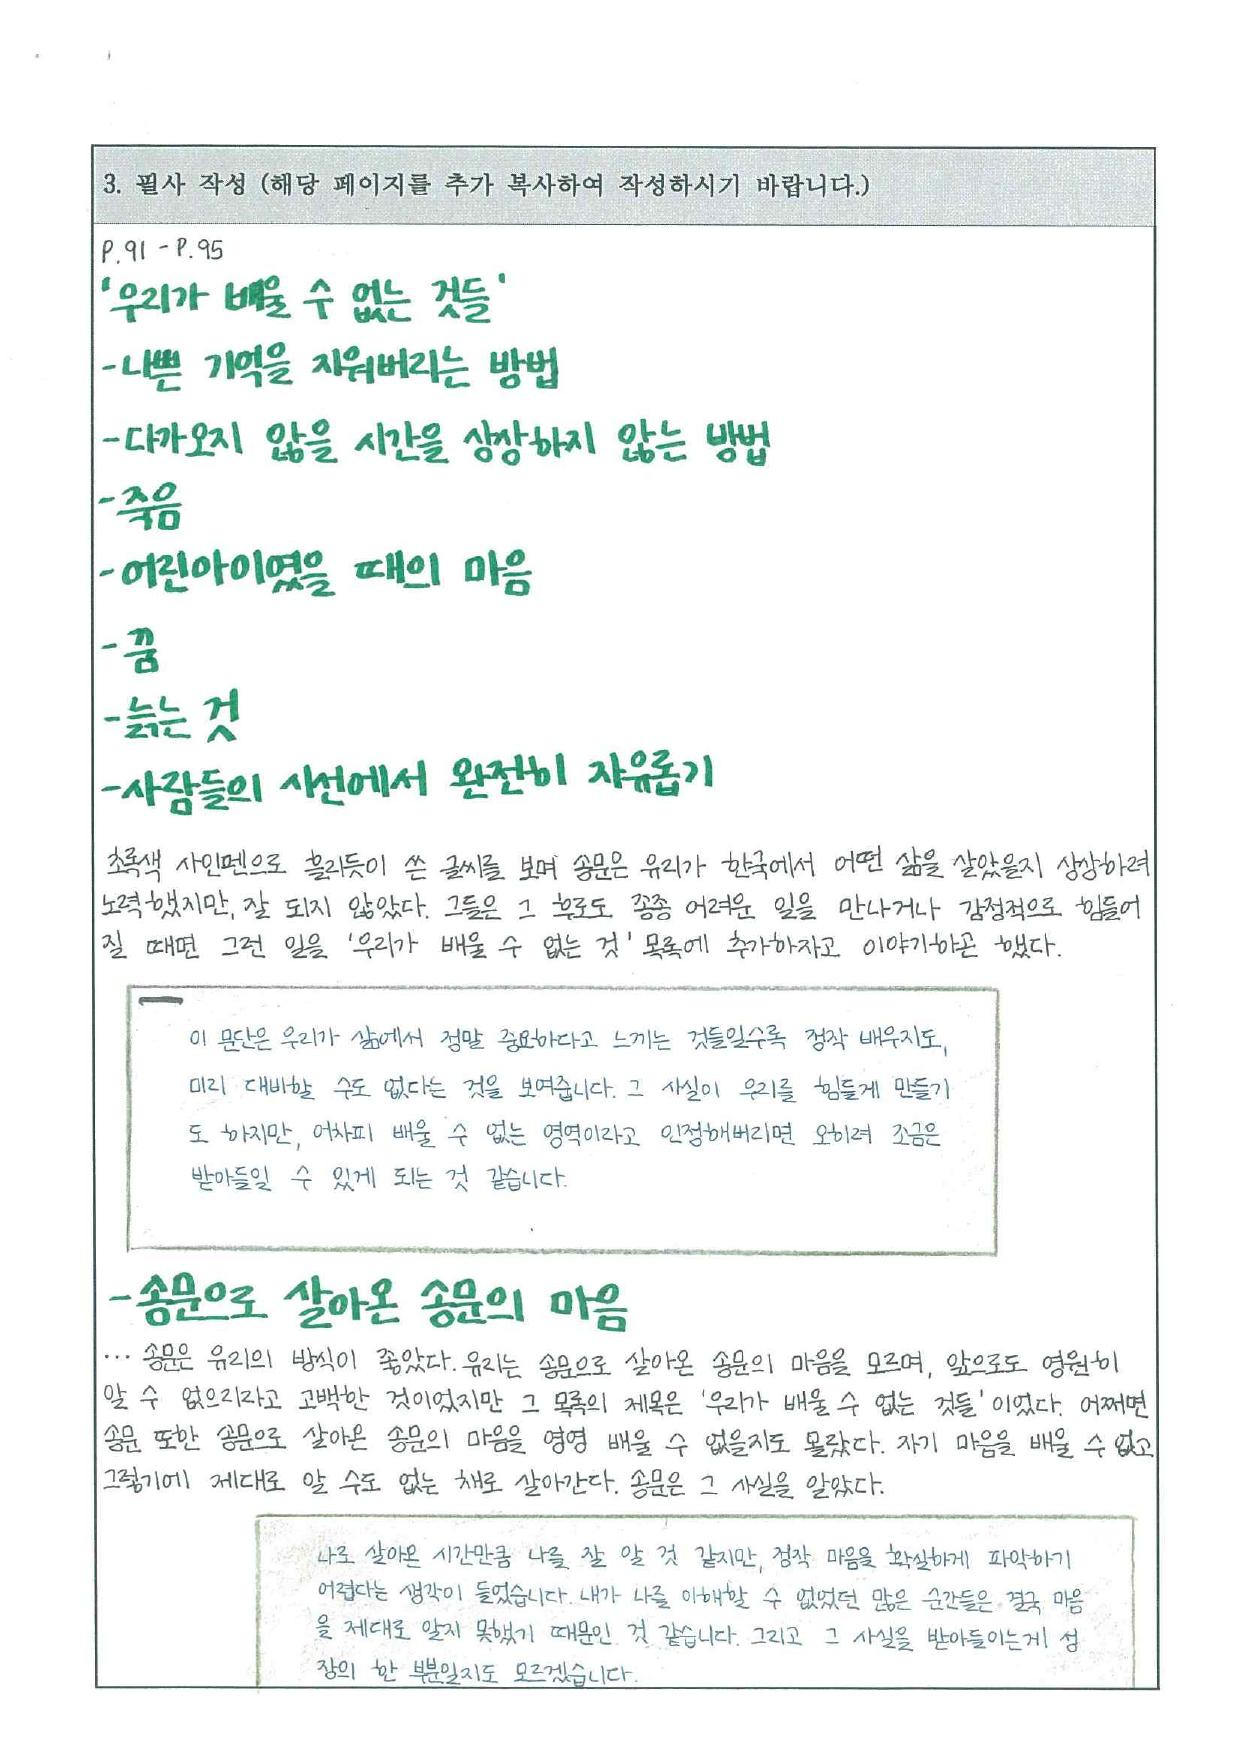 3. 필사 작성 (해당 페이지를 추가 복사하여 작성하시기 바랍니다.)
P.91 - P.95
'우리가 배울 수 없는 것들'
-나쁜 기억을 지워버리는 방법
-다가오지 않을 시간을 상상하지 않는 방법
-죽음
-어린아이였을 때의 마음
-꿈
-늙는 것
-사람들의 시선에서 완전히 자유롭기
초록색 사인펜으로 흘리듯이 쓴 글씨를 보며 송문은 유리가 한국에서 어떤 삶을 살았을지 상상하려
노력했지만, 잘 되지 않았다. 그들은 그 후로도 종종 어려운 일을 만나거나 감정적으로 힘들어
질 때면 그런 일을 '우리가 배울 수 없는 것' 목록에 추가하자고 이야기하곤 했다.
이 문단은 우리가 삶에서 정말 중요하다고 느끼는 것들일수록 정작 배우지도,
미리 대비할 수도 없다는 것을 보여줍니다. 그 사실이 우리를 힘들게 만들기
도 하지만, 어차피 배울 수 없는 영역이라고 인정해버리면 오히려 조금은
받아들일 수 있게 되는 것 같습니다.
-송문으로 살아온 송문의 마음
… 송문은 유리의 방식이 좋았다. 유리는 송문으로 살아온 송문의 마음을 모르며, 앞으로도 영원히
알 수 없으리라고 고백한 것이었지만 그 목록의 제목은 '우리가 배울 수 없는 것들'이었다. 어쩌면
송문 또한 송문으로 살아온 송문의 마음을 영영 배울 수 없을지도 몰랐다. 자기 마음을 배울 수 없고
그렇기에 제대로 알 수도 없는 채로 살아간다. 송문은 그 사실을 알았다.
나로 살아온 시간만큼 나를 잘 알 것 같지만, 정작 마음을 확실하게 파악하기
어렵다는 생각이 들었습니다. 내가 나를 이해할 수 없었던 많은 순간들은 결국 마음
을 제대로 알지 못했기 때문인 것 같습니다. 그리고 그 사실을 받아들이는게 성
장의 한 부분일지도 모르겠습니다.